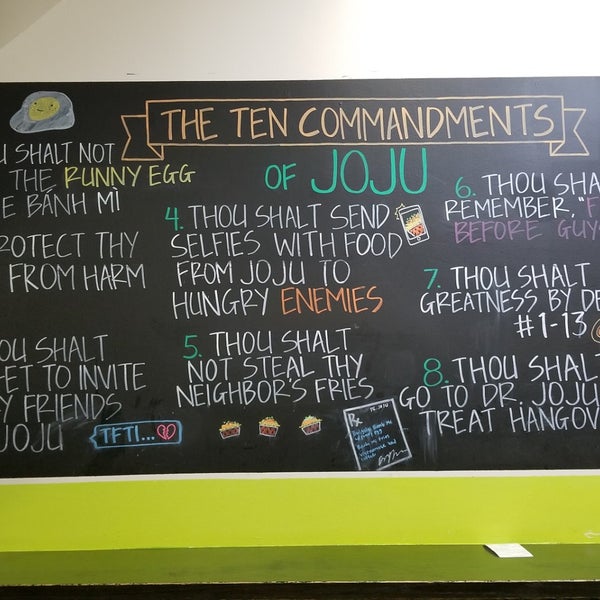 THE TEN COMMANDMENTS
OF JOJU
U SHALT NOT
THE RUNNY EGG
E BÁNH MÌ
ROTECT THY
FROM HARM
OU SHALT
ET TO INVITE
Y FRIENDS
JOJU
TFTI...
4. THOU SHALT SEND
SELFIES WITH FOOD
FROM JOJU TO
HUNGRY ENEMIES
5. THOU SHALT
NOT STEAL THY
NEIGHBOR'S FRIES
Rx
6. THOU SHA
REMEMBER, "F
BEFORE GUY
7. THOU SHALT
GREATNESS BY DE
#1-13
8. THOU SHALT
GO TO DR. JOJU
TREAT HANGOV